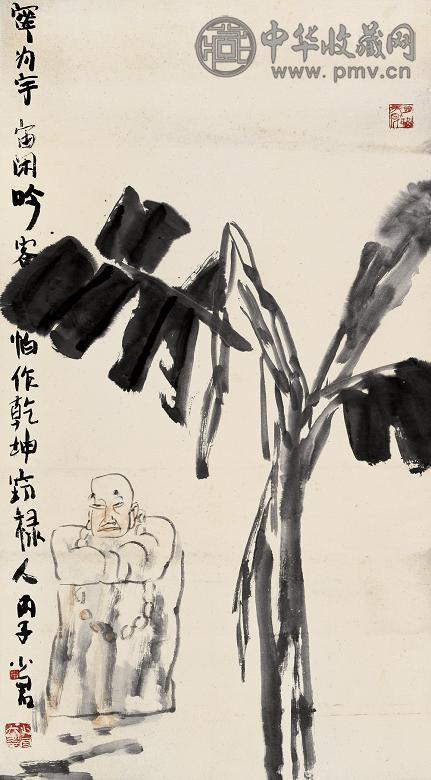 中华收藏网
www.pmv.cn
寧为宇宙闲吟客怕作乾坤窃禄人丙子